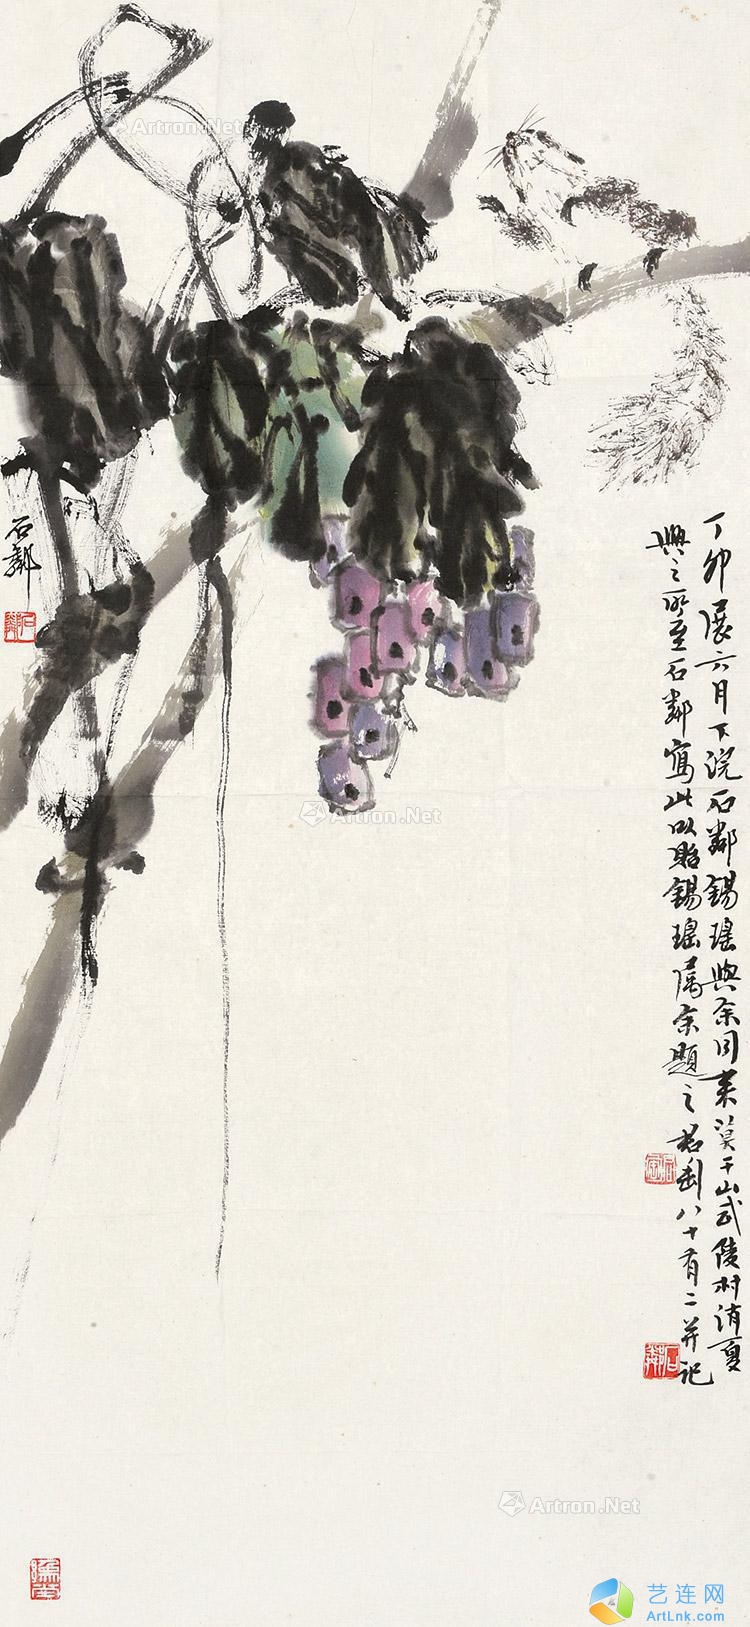 丁卯展六月下浣石鄰錫瑤與余同来莫干山武陵村消夏
興之所至石鄰寫此以貽錫瑤属余題之君匋八十有二并记
石鄰
Artron.Net
Artron.Net
Artron.Net
艺连网
ArtLnk.com